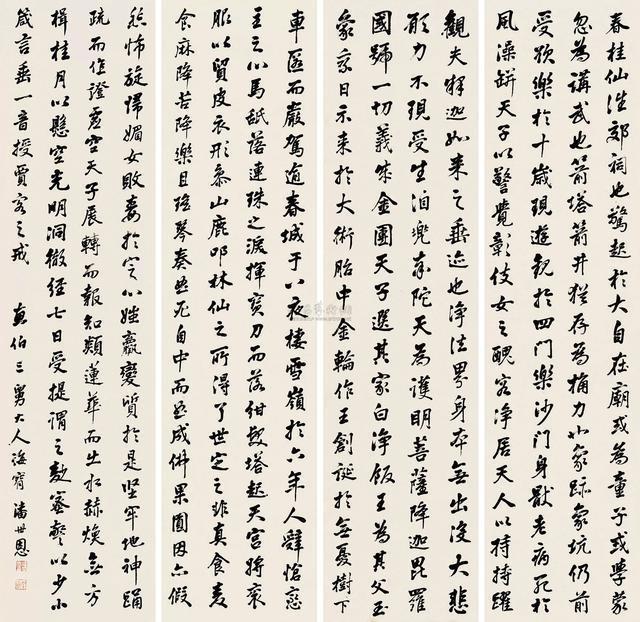 春桂仙往郊祠也驚起於大自在廟或為童子或學蒙
忽為講武也箭塔箭井猶存為桷力也象跡象坑仍前
受欲樂於十歲現遊觀於四門樂沙門身猒老病死於
風澡缾天子以警覺彰伎女之醜容淨居天人以持持躍
觀夫釋迦如來之垂迹也淨法界身本無出沒大悲
願力示現受生洎兜率陀天為護明菩薩降迦毘羅
國號一切義成金團天子選其家白淨飯王為其父玉
象乘日示來於大術胎中金輪作王創誕於無憂樹下
車匿而嚴駕逾春城于八夜棲雪嶺於六年人辭愴戀
王之心馬舐落連珠之淚揮寶刀而落紺髮塔起天宮將袞
服以貿皮衣形參山鹿叩林仙之所得了世定之非真食麦
食麻降苦降樂且弦琴奏無厄自中而至成佛果圓因亦假
愁怖旋歸媚女敗毒於定心媸羸變質於是堅牢地神踊
疏而作證虛空天子展轉而報知類蓮華而出水赫煥無方
楫桂月以懸空光明洞徹經七日受提謂之麨蜜以少小
箴言垂一音授賈客之戒 真伯三舅大人 潘世恩